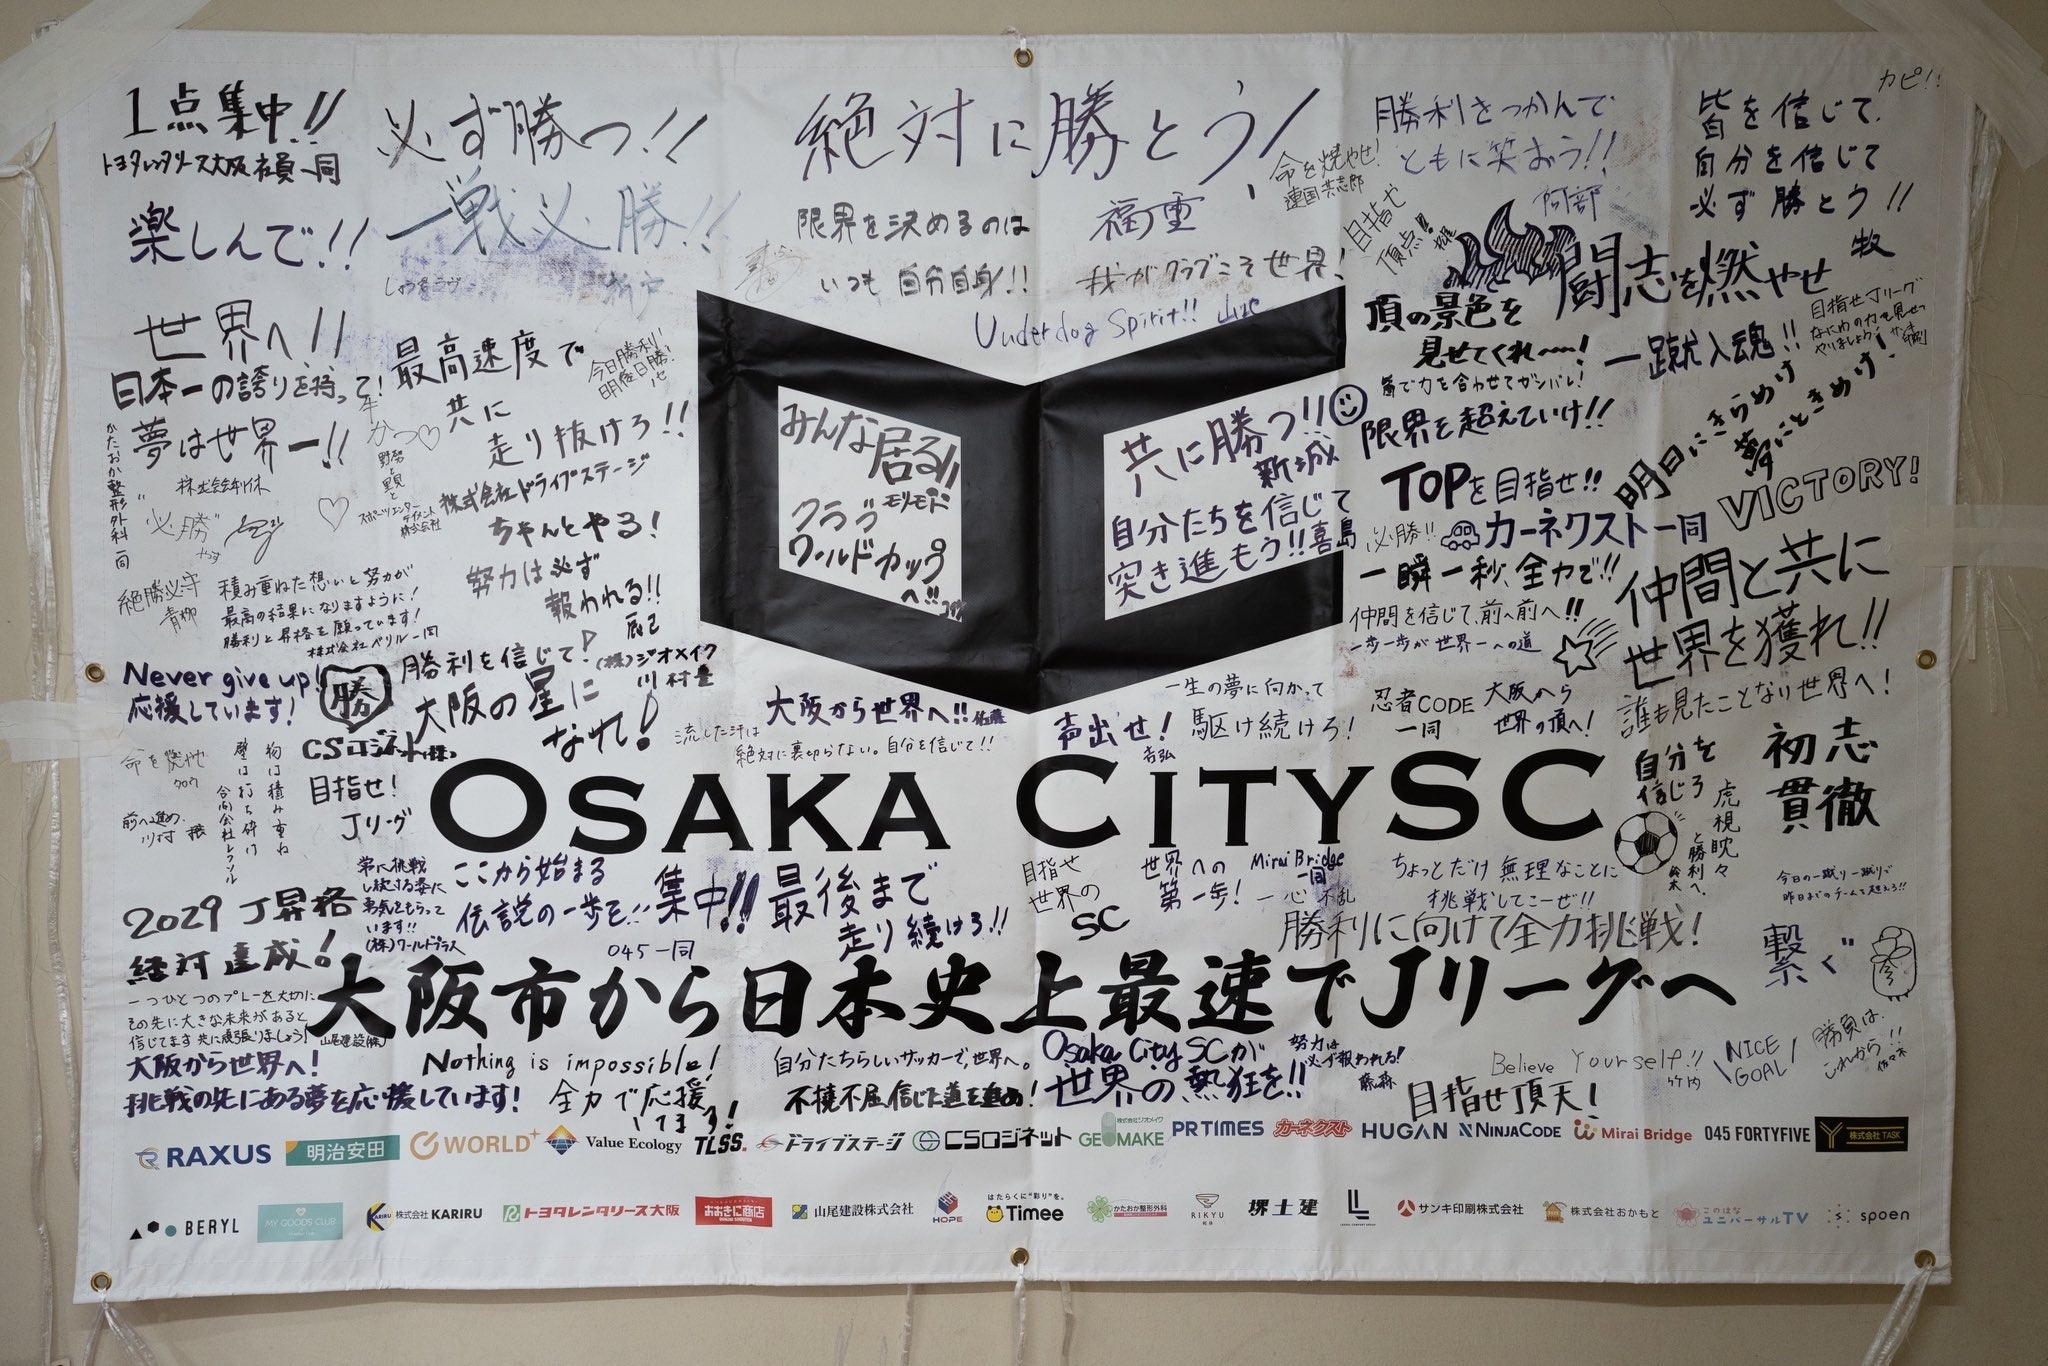 1点集中!!
トヨタレンタリース大阪 社員一同
必ず勝つ!!
絶対に勝とう!
勝利をつかんで
ともに笑おう!!
阿部
カピ!!
皆を信じて、
自分を信じて
必ず勝とう!!
牧
楽しんで!!
一戦必勝!!
限界を決めるのは
いつも自分自身!!
福重
命を燃やせ!
目指せ
頂点!!
我がクラブこそ世界!
Underdog Spirit!!
闘志を燃やせ
世界へ!!
日本一の誇りを持って!
夢は世界一!!
かたおか整形外科一同
最高速度で
共に
走り抜けろ!!
株式会社ドライブステージ
今日勝利!
明後日勝!
頂の景色を
見せてくれ~~!
一蹴入魂!!
目指せJリーグ
皆で力を合わせてガンバレ!
限界を超えていけ!!
明日にきらめけ
夢にときめけ!
みんな居る!!
モリモド
クラブ
ワールドカップ
へ!!
共に勝つ!!
新城
自分たちを信じて
突き進もう!!喜島
TOPを目指せ!!
VICTORY!
必勝!!
カーネクスト一同
一瞬一秒、全力で!!
仲間と共に
世界を獲れ!!
株式会社利休
"必勝"
スポーツエンターテイメント
株式会社
ちゃんとやる!
努力は必ず
報われる!!
辰己
絶勝必守
青柳
積み重ねた想いと努力が
最高の結果になりますように!
勝利と昇格を願っています!
株式会社ベリル一同
仲間を信じて、前へ前へ!!
一歩一歩が世界一への道
Never give up!
応援しています!
勝
CSロジネット(株)
勝利を信じて!
大阪の星に
なれ!
(株)ジオメイク
川村豊
流した汗は
絶対に裏切らない。自分を信じて!!
大阪から世界へ!!佐藤
声出せ!
吉弘
一生の夢に向かって
駆け続けろ!
忍者CODE
一同
大阪から
世界の頂へ!
誰も見たことない世界へ!
命を燃やせ
壁は打ち砕け
目指せ!
Jリーグ
前へ進め、
OSAKA CITYSC
自分を
信じろ
虎視眈々
と勝利へ、
鈴木
初志
貫徹
常に挑戦
し続ける姿に
勇気をもらって
います!!
(株)ワールドプラス
ここから始まる
伝説の一歩を!!
045一同
集中!!
最後まで
走り続けろ!!
目指せ
世界の
SC
世界への
第一歩!
Mirai Bridge
一同
一心不乱
ちょっとだけ無理なことに
挑戦してこーぜ!!
勝利に向けて全力挑戦!
今日の一蹴り一蹴りで
昨日までのチームを超えろ!!
繋ぐ
2029 J昇格
絶対達成!
大阪市から日本史上最速でJリーグへ
一つひとつのプレーを大切に
その先に大きな未来があると
信じてます 共に頑張りましょう!
山尾建設(株)
大阪から世界へ!
挑戦の先にある夢を応援しています!
Nothing is impossible!
全力で応援
してます!
自分たちらしいサッカーで、世界へ。
不撓不屈 信じた道を進め!
Osaka City SCが
世界の熱狂を!!
努力は
必ず報われる!
藤森
Believe Yourself!!
竹内
目指せ頂天!
NICE
GOAL
勝負は、
これから!!
佐々木
RAXUS
明治安田
WORLD+
Value Ecology
TLSS.
ドライブステージ
CSロジネット
株式会社ジオメイク
GEOMAKE
PR TIMES
カーネクスト
HUGAN
NINJACODE
Mirai Bridge
045 FORTYFIVE
株式会社TASK
BERYL
MY GOODS CLUB
株式会社KARIRU
トヨタレンタリース大阪
おおきに商店
山尾建設株式会社
HOPE
はたらくに"彩り"を。
Timee
かたおか整形外科
RIKYU
堺土建
サンキ印刷株式会社
株式会社おかもと
このはな
ユニバーサルTV
spoen